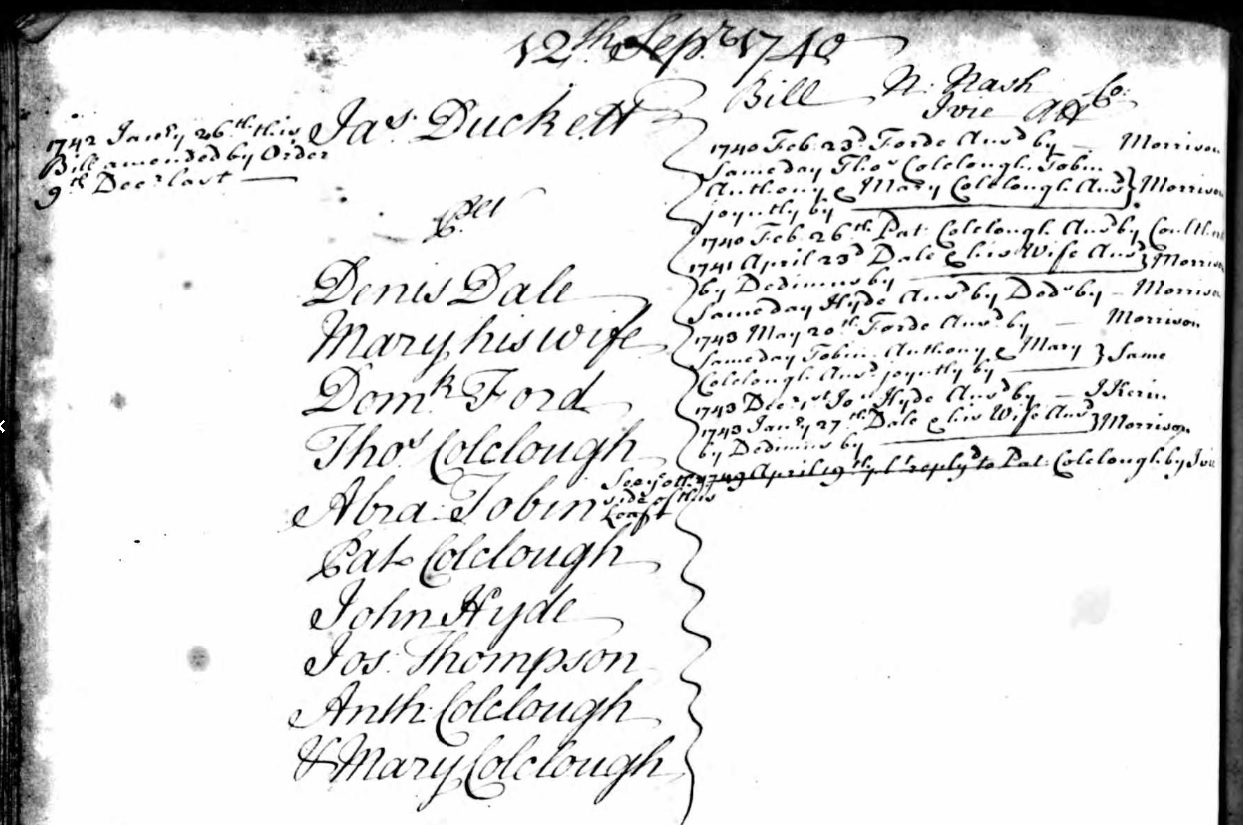 12th Sepr 1740
1742 Janry 26th this
Bill amended by Order
9th Decr last
Jas Duckett
Bill N: Nash Co:
Ivie Att
Denis Dale
Mary his wife
Domk Ford
Thos Colclough
Abra: Tobin
Pat Colclough
John Hyde
Jos: Thompson
Anth: Colclough
& Mary Colclough
1740 Feb: 23d Forde Ansd by — Morrison
Same day Thos Colclough Tobin
Anthony & Mary Colclough Ansd } Morrison
joyntly by
1740 Feb: 26th Pat: Colclough Ansd by
1741 April 23d Dale & his Wife Ansd } Morrison
by Dedimus by
Same day Hyde Ansd by Deds by — Morrison
1743 May 20th Forde Ansd by — Morrison
Same day Tobin Anthony & Mary } Same
Colclough Ansd joyntly by
1743 Decr 1st Jos Hyde Ansd by — J Kerin
1743 Janry 27th Dale & his Wife Ansd } Morrison
by Dedimus by
1749 April 19th reply'd to Pat: Colclough by Ivie
See ye othr
side of this
Leaf